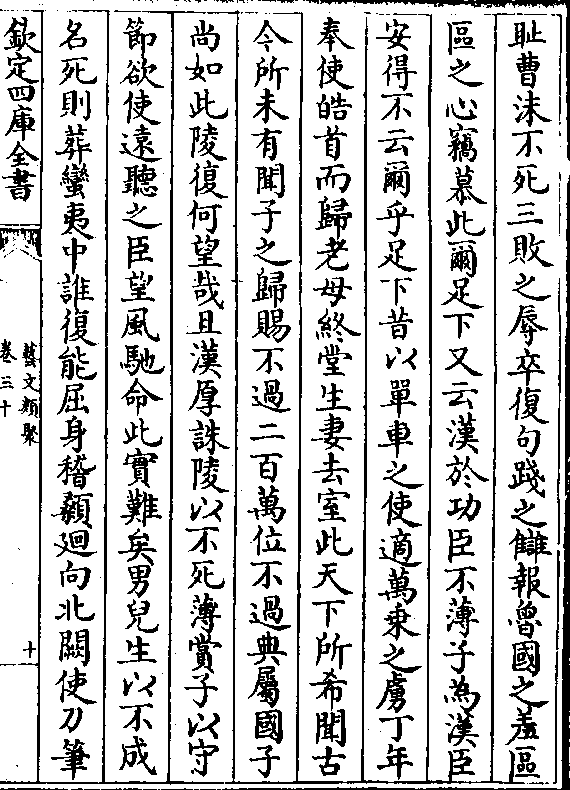 恥曹沫不死三敗之辱卒復句踐之讎報魯國之羞區
區之心竊慕此爾足下又云漢於功臣不薄子為漢臣
安得不云爾乎足下昔以單車之使適萬乘之虜丁年
奉使皓首而歸老母終堂生妻去室此天下所希聞古
今所未有聞子之歸賜不過二百萬位不過典屬國子
尚如此陵復何望哉且漢厚誅陵以不死薄賞子以守
節欲使遠聽之臣望風馳命此實難矣男兒生以不成
名死則葬蠻夷中誰復能屈身稽顙廻向北闕使刀筆
欽定四庫全書
藝文類聚
卷三十
十